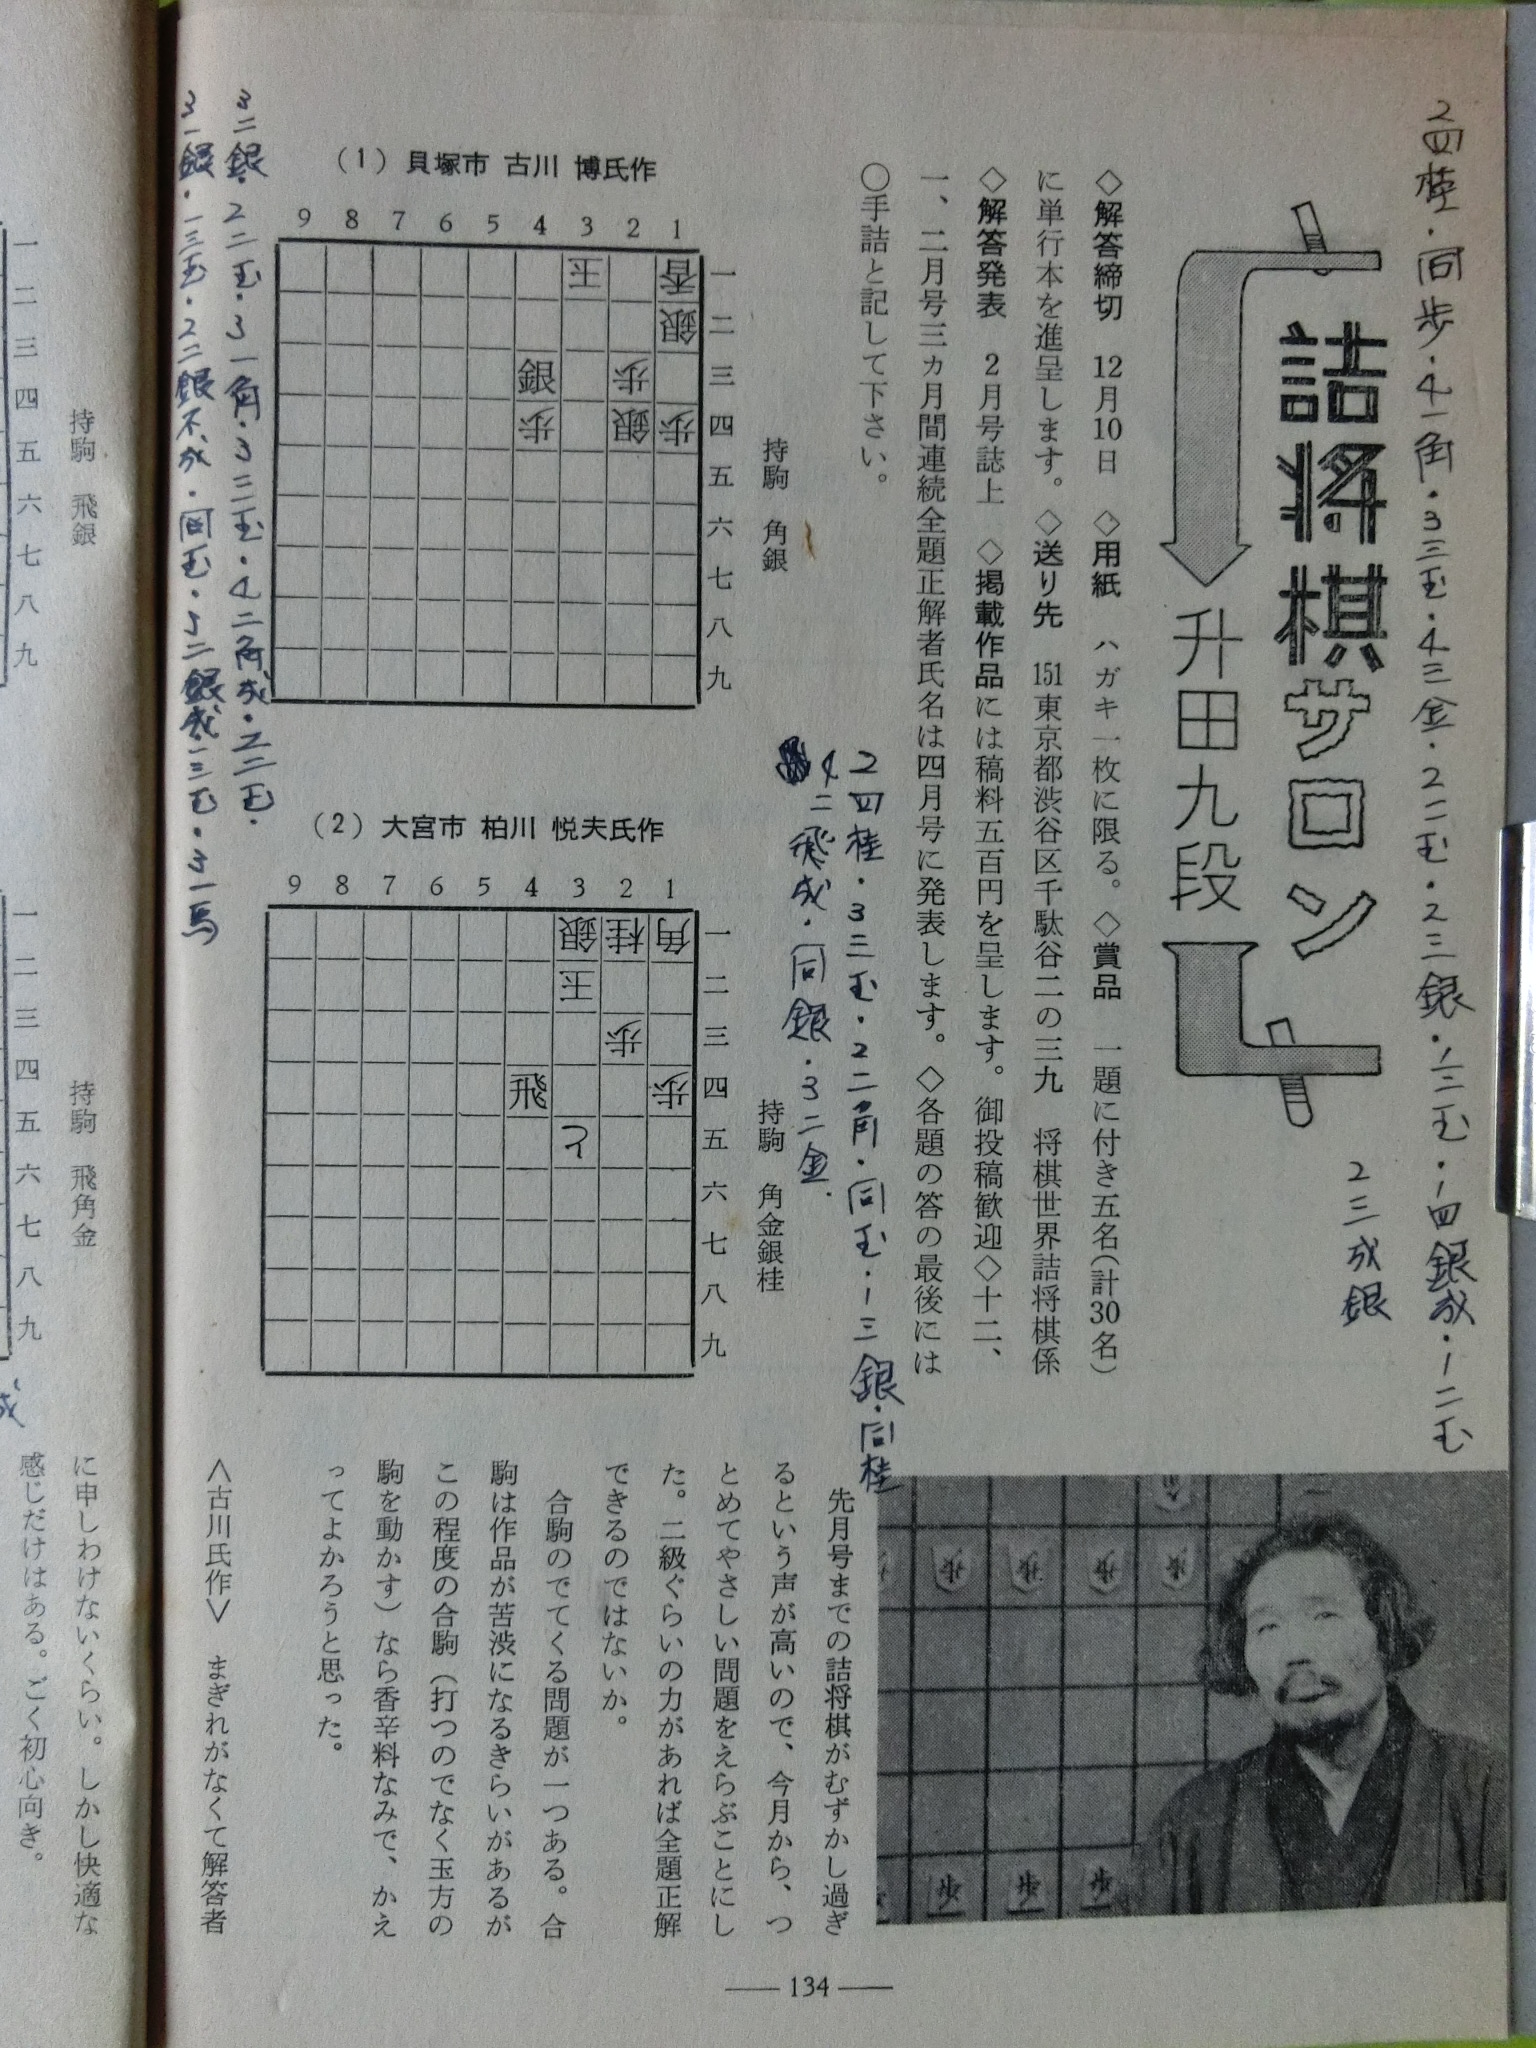 2四桂・同歩・4一角・3三玉・4三金・2二玉・2三銀・1三玉・1四銀成・1二玉
2三成銀
詰将棋サロン
升田九段
◇解答締切 12月10日 ◇用紙 ハガキ一枚に限る。◇賞品 一題に付き五名(計30名)
に単行本を進呈します。◇送り先 151東京都渋谷区千駄谷二の三九 将棋世界詰将棋係
◇解答発表 2月号誌上 ◇掲載作品には稿料五百円を呈します。御投稿歓迎◇十二、
一、二月号三カ月間連続全題正解者氏名は四月号に発表します。◇各題の答の最後には
○手詰と記して下さい。
2四桂・3三玉・2二角・同玉・1三銀・同桂
4二飛成・同銀・3二金.
(1) 貝塚市 古川 博氏作
9 8 7 6 5 4 3 2 1
玉 香 一
銀 二
銀 歩 三
歩 銀 歩 四
五
六
七
八
九
持駒 角銀
3二銀・2二玉・3一角・3三玉・4二角成・2二玉・
3一銀・1三玉・2二銀不成・同玉・3二銀成・1三玉・3一馬
(2) 大宮市 柏川 悦夫氏作
9 8 7 6 5 4 3 2 1
銀 桂 角 一
玉 二
歩 三
飛 歩 四
と 五
六
七
八
九
持駒 角金銀桂
先月号までの詰将棋がむずかし過ぎ
るという声が高いので、今月から、つ
とめてやさしい問題をえらぶことにし
た。二級ぐらいの力があれば全題正解
できるのではないか。
合駒のでてくる問題が一つある。合
駒は作品が苦渋になるきらいがあるが
この程度の合駒(打つのでなく玉方の
駒を動かす)なら香辛料なみで、かえ
ってよかろうと思った。
<古川氏作> まぎれがなくて解答者
に申しわけないくらい。しかし快適な
感じだけはある。ごく初心向き。
—— 134 ——
持駒 飛銀
一
二
三
四
五
六
七
八
九
持駒 飛角金
一
二
三
四
五
六
七
八
九
成